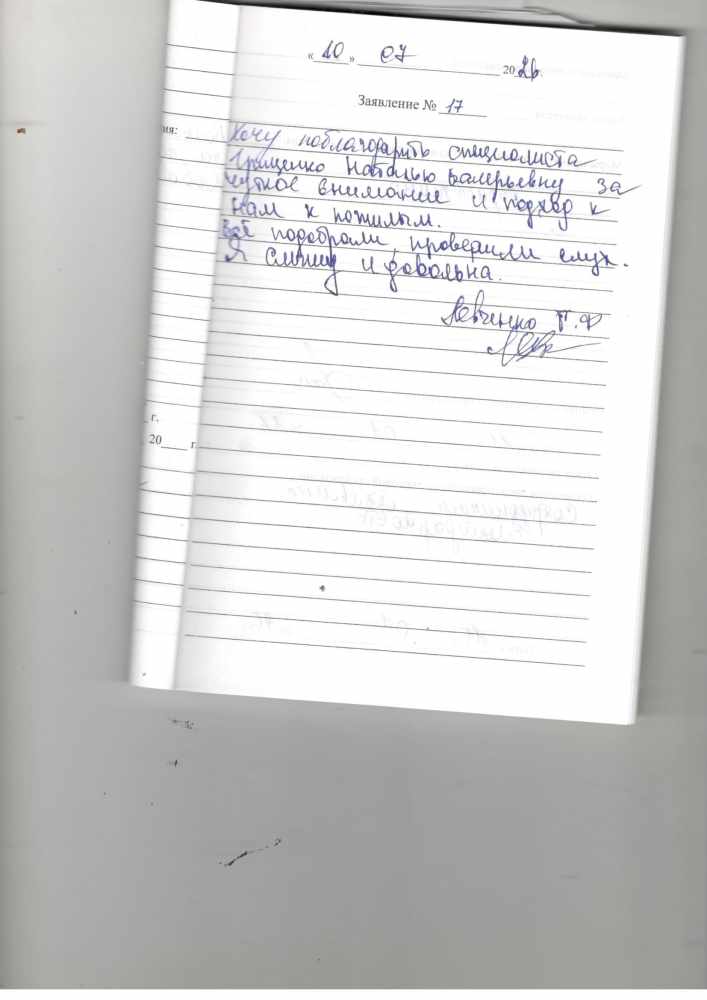 «10» 07 2026.
Заявление № 17
ия: Хочу поблагодарить специалиста
Грищенко Наталью Валерьевну за
чуткое внимание и подход к
нам к пожилым.
Всё подобрали, проверили слух.
Я слышу и довольна.
Левченко П.Ф
г.
20 г.